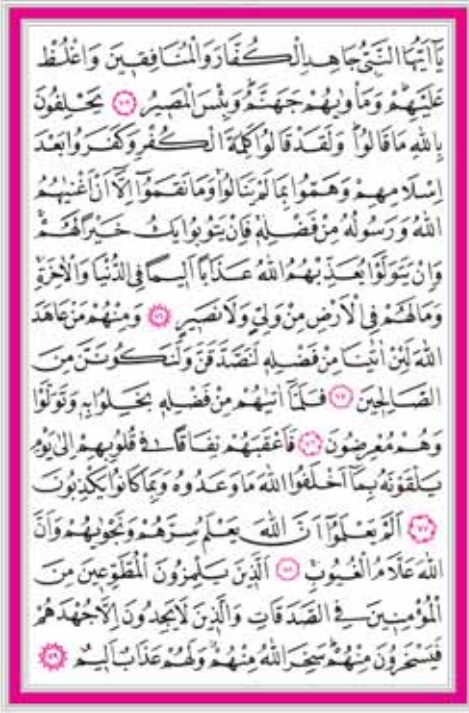 يَآ اَيُّهَا النَّبِيُّ جَاهِدِ الْكُفَّارَ وَالْمُنَافِقٖينَ وَاغْلُظْ
عَلَيْهِمْ وَمَأْوٰيهُمْ جَهَنَّمُ وَبِئْسَ الْمَصٖيرُ ﴿٧٣﴾ يَحْلِفُونَ
بِاللّٰهِ مَا قَالُوا وَلَقَدْ قَالُوا كَلِمَةَ الْكُفْرِ وَكَفَرُوا بَعْدَ
اِسْلَامِهِمْ وَهَمُّوا بِمَا لَمْ يَنَالُوا وَمَا نَقَمُٓوا اِلَّٓا اَنْ اَغْنٰيهُمُ
اللّٰهُ وَرَسُولُهُ مِنْ فَضْلِهٖ فَاِنْ يَتُوبُوا يَكُ خَيْرًا لَهُمْ
وَاِنْ يَتَوَلَّوْا يُعَذِّبْهُمُ اللّٰهُ عَذَابًا اَلٖيمًا فِي الدُّنْيَا وَالْاٰخِرَةِ
وَمَا لَهُمْ فِي الْاَرْضِ مِنْ وَلِيٍّ وَلَا نَصٖيرٍ ﴿٧٤﴾ وَمِنْهُمْ مَنْ عَاهَدَ
اللّٰهَ لَئِنْ اٰتٰينَا مِنْ فَضْلِهٖ لَنَصَّدَّقَنَّ وَلَنَكُونَنَّ مِنَ
الصَّالِحٖينَ ﴿٧٥﴾ فَلَمَّٓا اٰتٰيهُمْ مِنْ فَضْلِهٖ بَخِلُوا بِهٖ وَتَوَلَّوْا
وَهُمْ مُعْرِضُونَ ﴿٧٦﴾ فَاَعْقَبَهُمْ نِفَاقًا فٖي قُلُوبِهِمْ اِلٰى يَوْمِ
يَلْقَوْنَهُ بِمَٓا اَخْلَفُوا اللّٰهَ مَا وَعَدُوهُ وَبِمَا كَانُوا يَكْذِبُونَ
﴿٧٧﴾ اَلَمْ يَعْلَمُٓوا اَنَّ اللّٰهَ يَعْلَمُ سِرَّهُمْ وَنَجْوٰيهُمْ وَاَنَّ
اللّٰهَ عَلَّامُ الْغُيُوبِ ﴿٧٨﴾ اَلَّذٖينَ يَلْمِزُونَ الْمُطَّوِّعٖينَ مِنَ
الْمُؤْمِنٖينَ فِي الصَّدَقَاتِ وَالَّذٖينَ لَا يَجِدُونَ اِلَّا جُهْدَهُمْ
فَيَسْخَرُونَ مِنْهُمْ سَخِرَ اللّٰهُ مِنْهُمْ وَلَهُمْ عَذَابٌ اَلٖيمٌ ﴿٧٩﴾